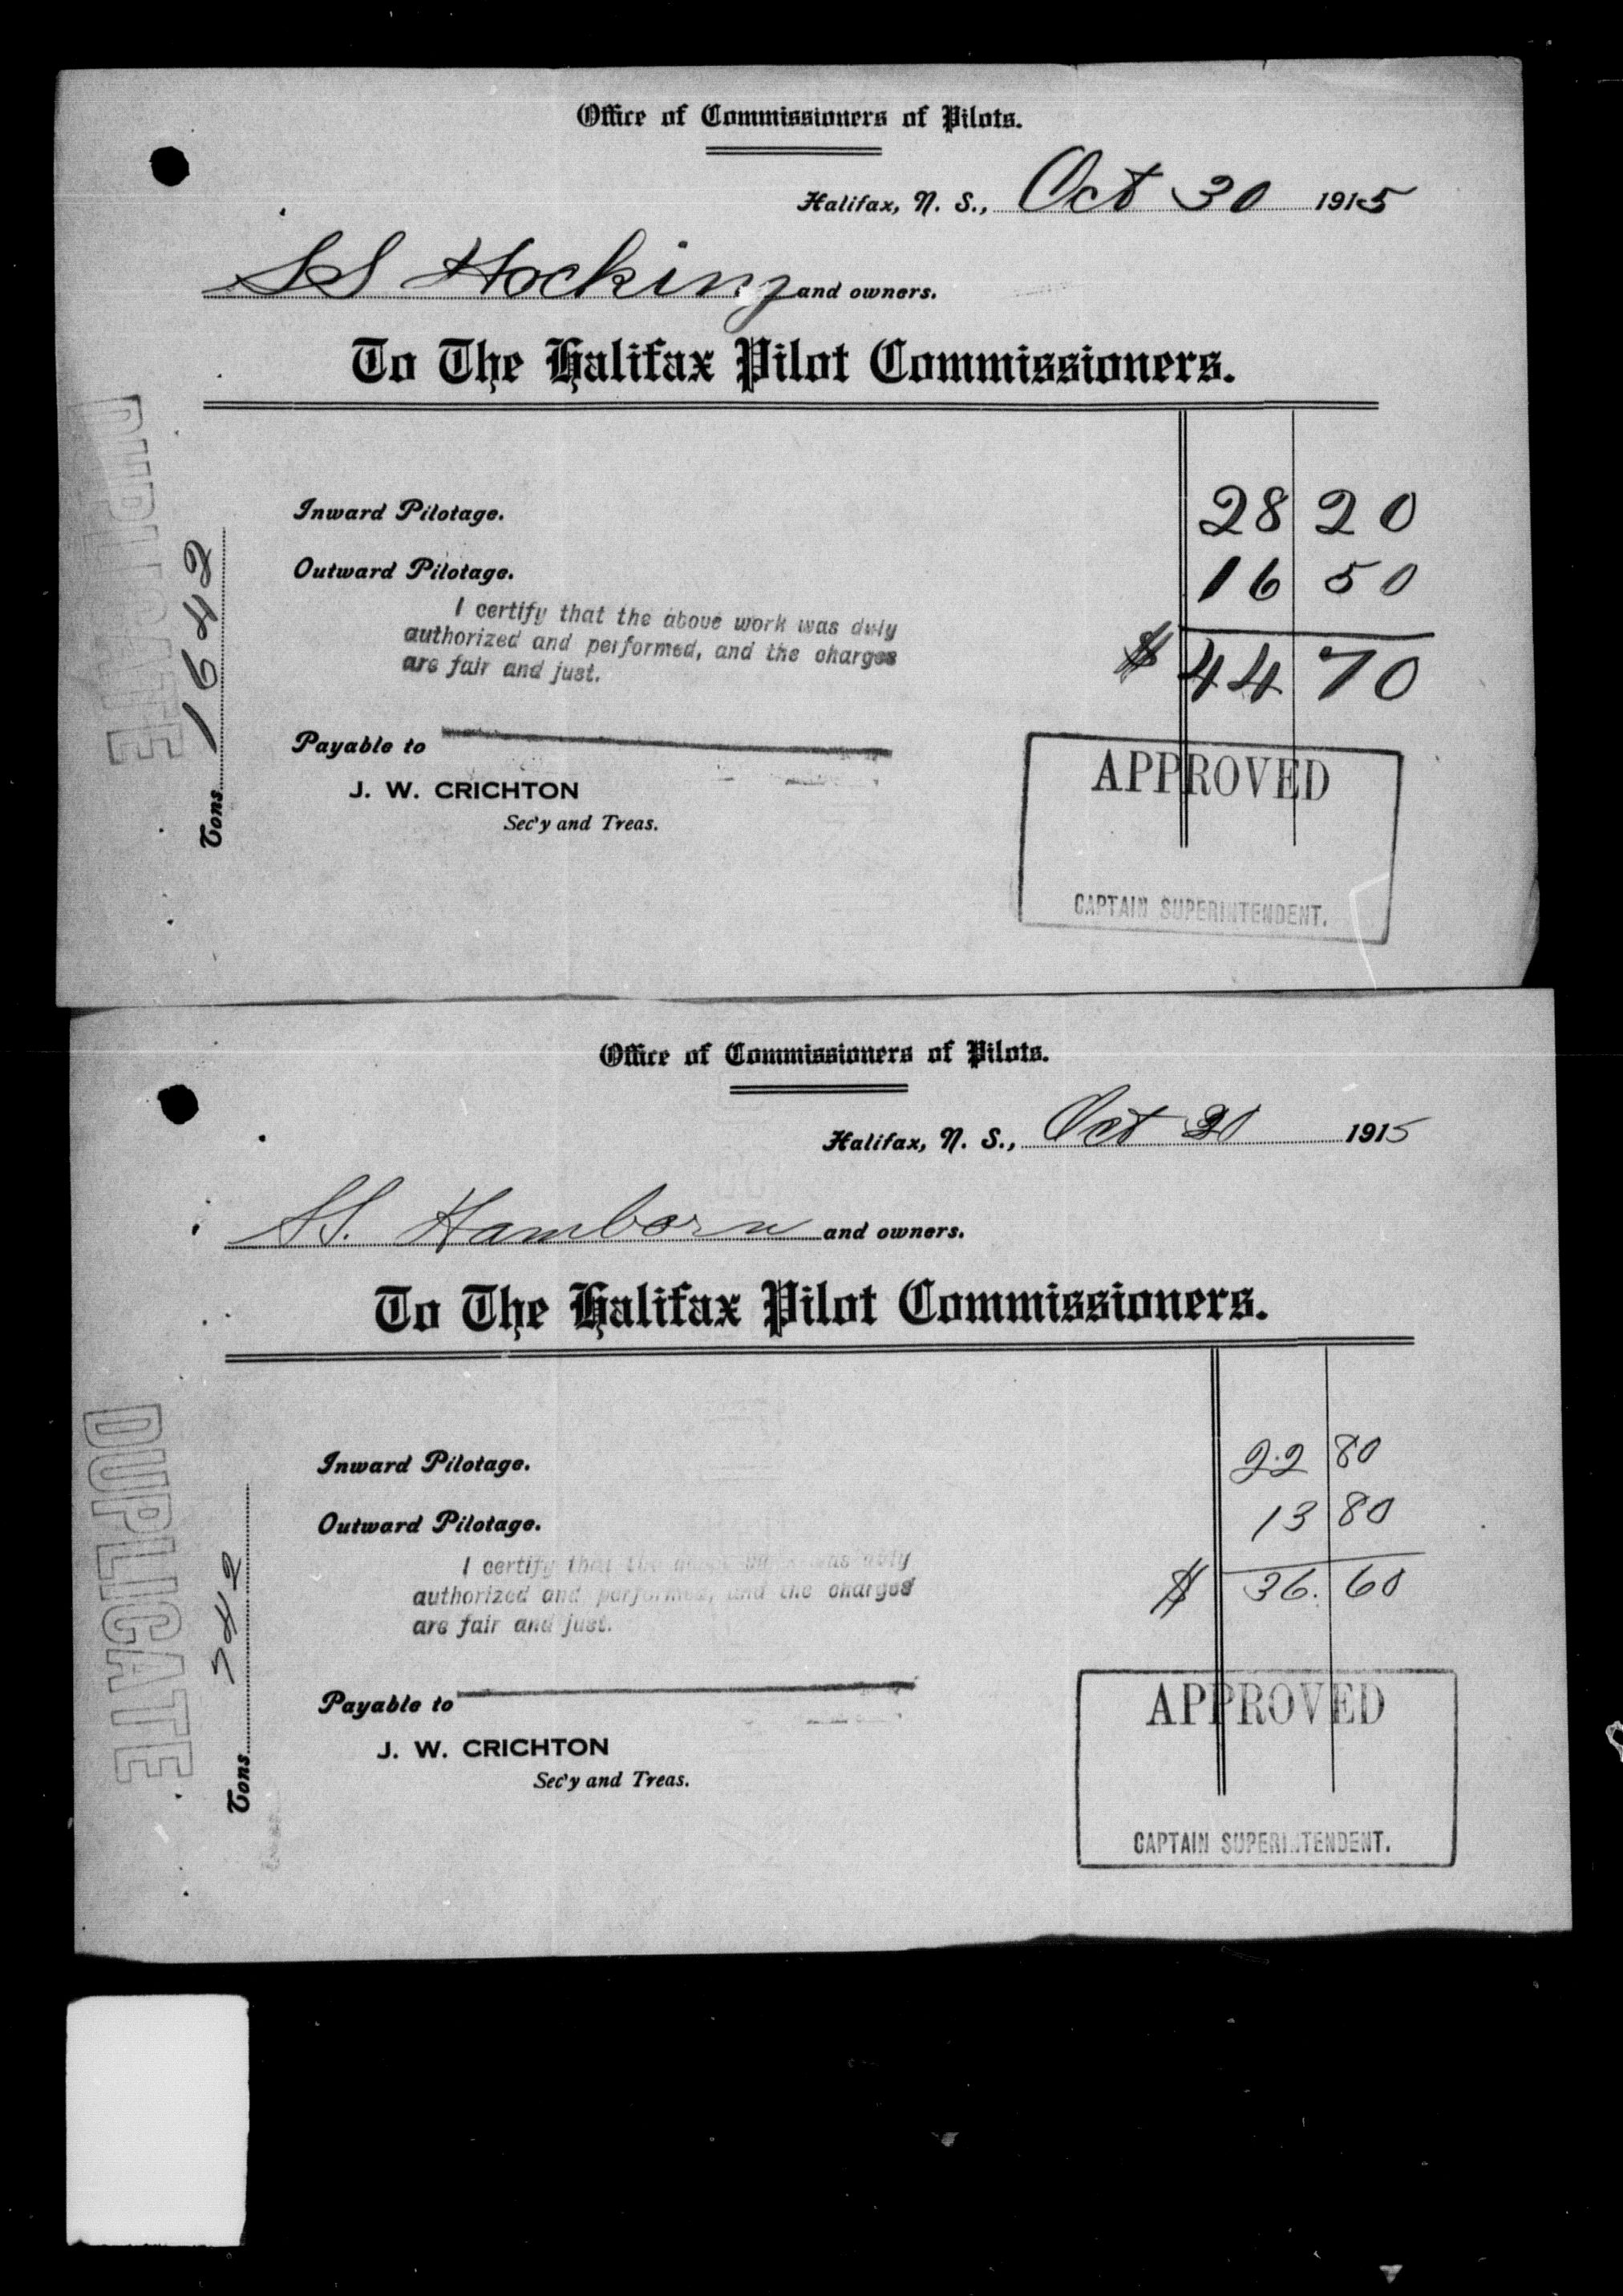 Office of Commissioners of Pilots.
Halifax, N. S., Oct 30 1915
SS Hocking and owners.
To The Halifax Pilot Commissioners.
Inward Pilotage. 28 20
Outward Pilotage. 16 50
I certify that the above work was duly
authorized and performed, and the charges
are fair and just.
$ 44 70
Payable to
J. W. CRICHTON
Sec'y and Treas.
APPROVED
CAPTAIN SUPERINTENDENT.
Tons 1642
DUPLICATE
Office of Commissioners of Pilots.
Halifax, N. S., Oct 30 1915
SS. Hamborn and owners.
To The Halifax Pilot Commissioners.
Inward Pilotage. 22 80
Outward Pilotage. 13 80
I certify that the above work was duly
authorized and performed, and the charges
are fair and just.
$ 36. 60
Payable to
J. W. CRICHTON
Sec'y and Treas.
APPROVED
CAPTAIN SUPERINTENDENT.
Tons 742
DUPLICATE